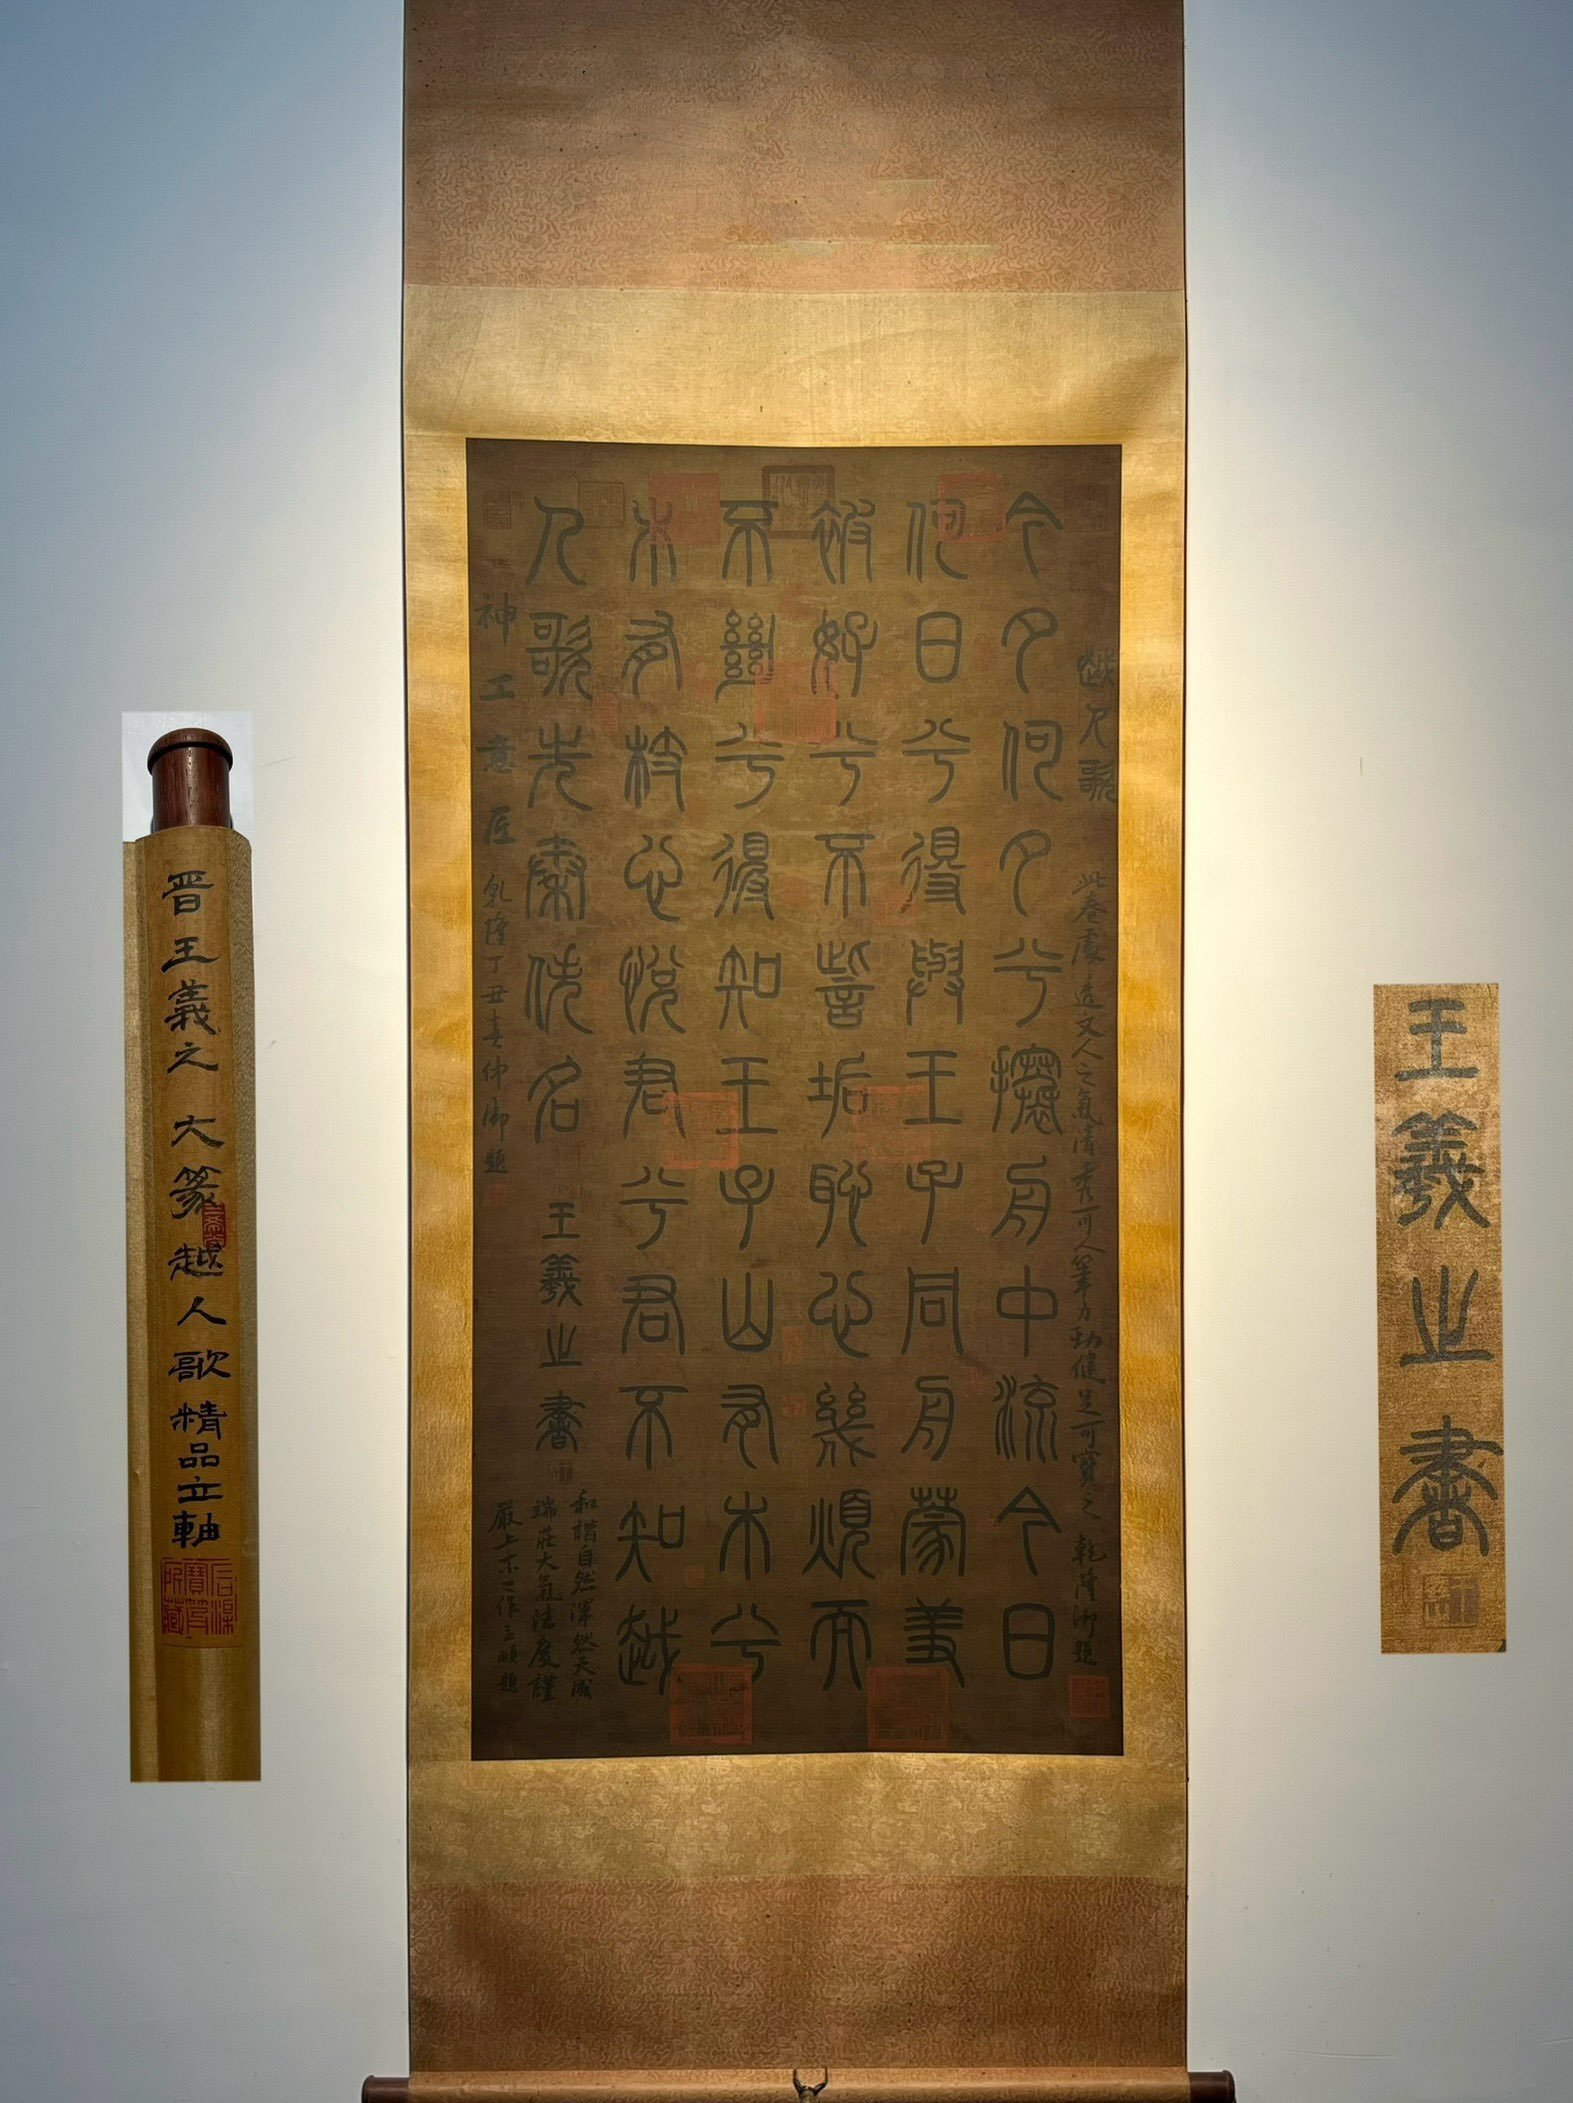 越人歌 此卷處透文人之氣清秀可人筆力勁健是可寶之 乾隆御題
今夕何夕兮攓舟中流今日
何日兮得與王子同舟蒙羞
被好兮不訾垢恥心幾煩而
不絕兮得知王子山有木兮
木有枝心悅君兮君不知越
人歌先秦佚名
王羲之書
神工意匠 乾隆丁丑春仲御題
和諧自然渾然天成
端莊大氣法度謹
嚴上乘之作 題
晋王義之 大篆越人歌精品立軸
石渠寶笈所藏
王羲之書